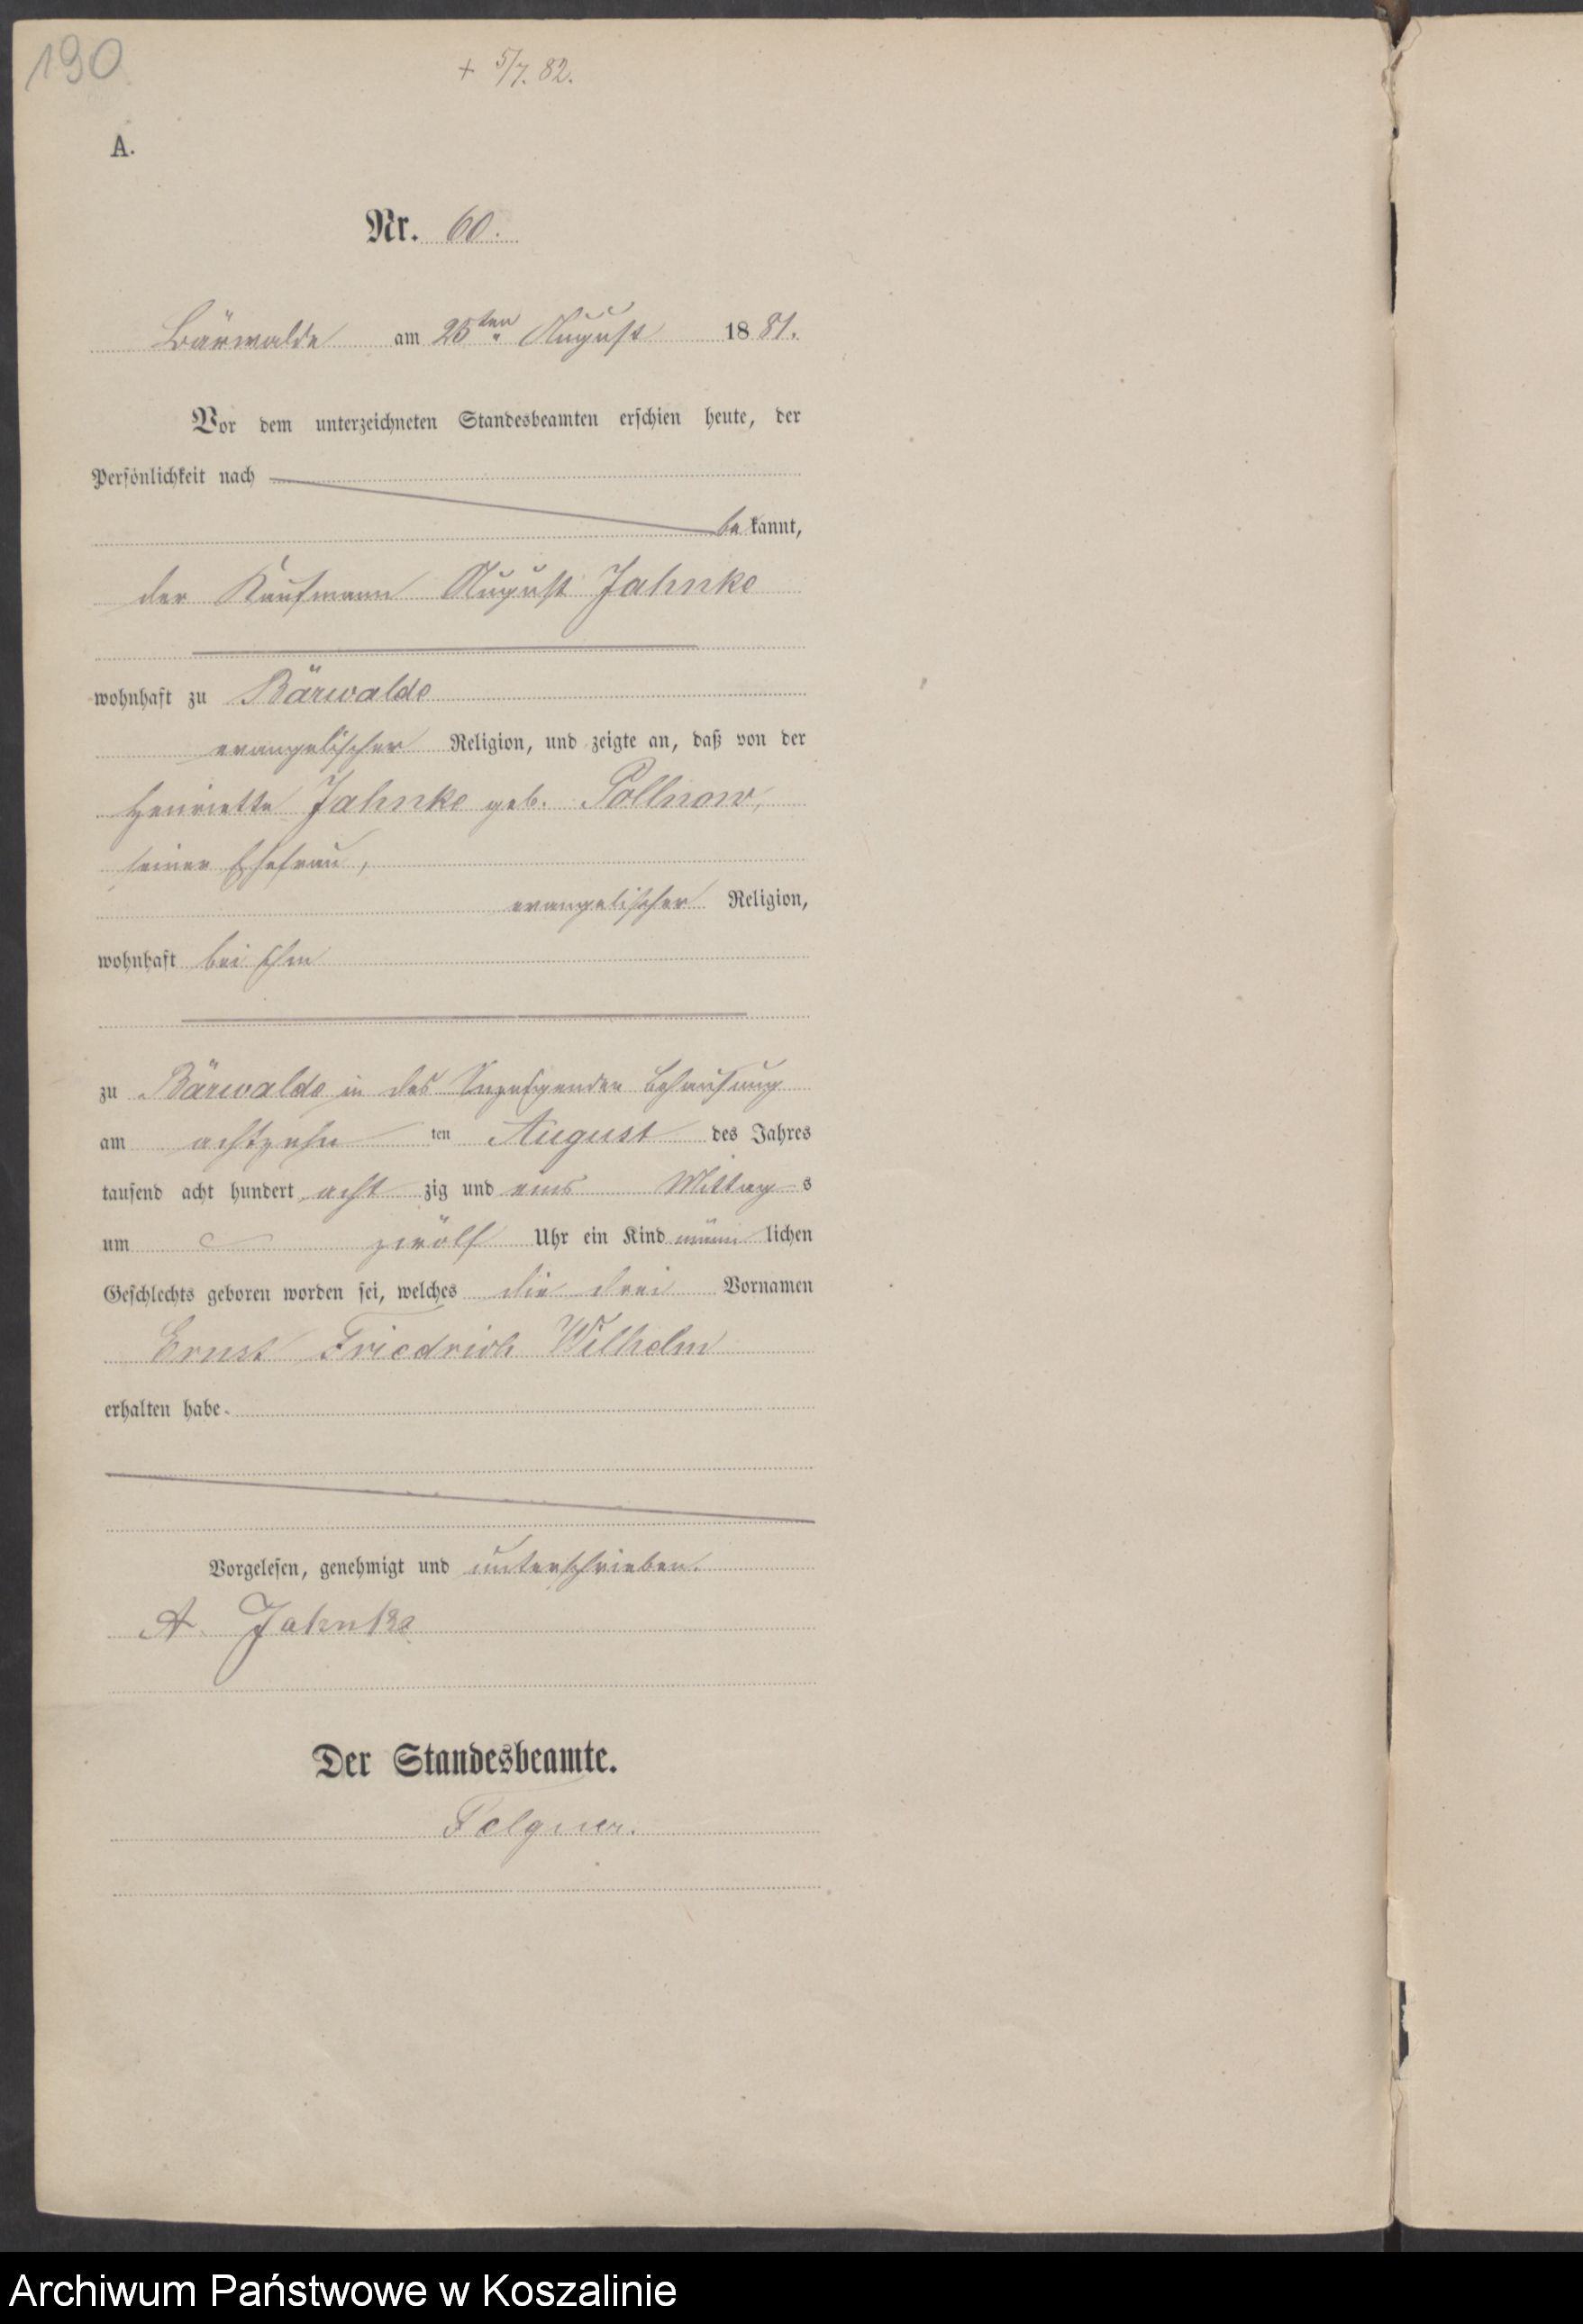 190
+ 5/7. 82.
A.
Nr. 60.
Bärwalde am 25ten August 1881.
Vor dem unterzeichneten Standesbeamten erschien heute, der
Persönlichkeit nach
be kannt,
der Kaufmann August Jahnke
wohnhaft zu Bärwalde
evangelischer Religion, und zeigte an, daß von der
Henriette Jahnke geb. Pollnow,
seiner Ehefrau,
evangelischer Religion,
wohnhaft bei ihm
zu Bärwalde in des Anzeigenden Behausung
am achtzehn ten August des Jahres
tausend acht hundert acht zig und eins Mittag s
um zwölf Uhr ein Kind männ lichen
Geschlechts geboren worden sei, welches die drei Vornamen
Ernst Friedrich Wilhelm
erhalten habe.
Vorgelesen, genehmigt und unterschrieben.
A. Jahnke
Der Standesbeamte.
Felgner.
Archiwum Państwowe w Koszalinie